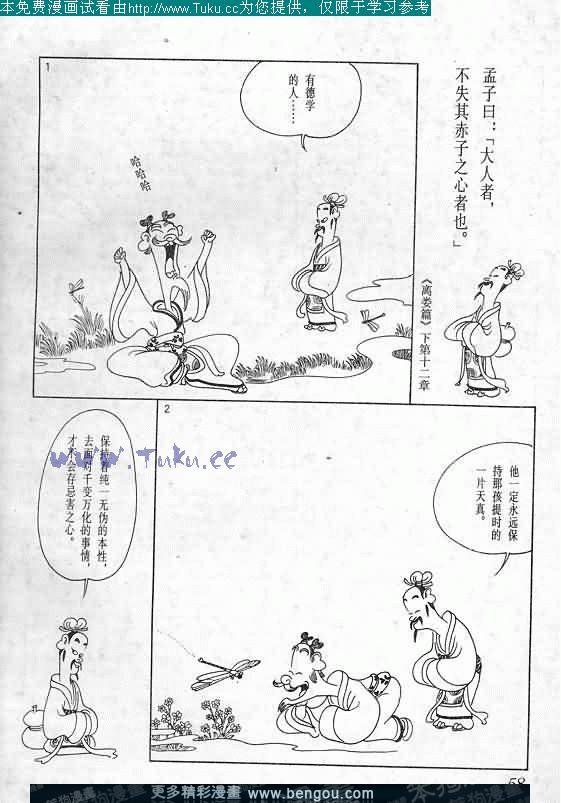 本免费漫画试看由http://www.Tuku.cc为您提供，仅限于学习参考
孟子曰：「大人者，
不失其赤子之心者也。」
《离娄篇》下第十二章
1
有德学
的人……
哈哈哈
2
他一定永远保
持那孩提时的
一片天真。
保持着纯一无伪的本性，
去面对千变万化的事情，
才不会存忌害之心。
www.Tuku.cc
58
更多精彩漫畫 www.bengou.com